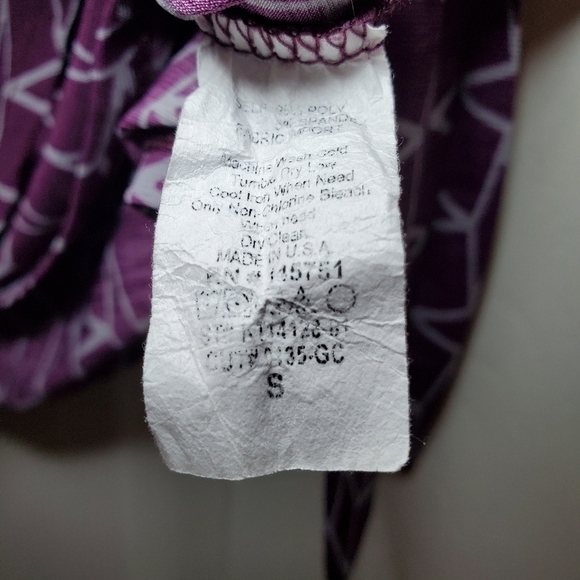 95% POLY
SPANDE
FABRIC IMPORT
Machine Wash Cold
Tumble Dry Low
Cool Iron When Need
Only Non-Chlorine Bleach
When need
Dry Clean
MADE IN U.S.A
RN # 115751
CUT#
S